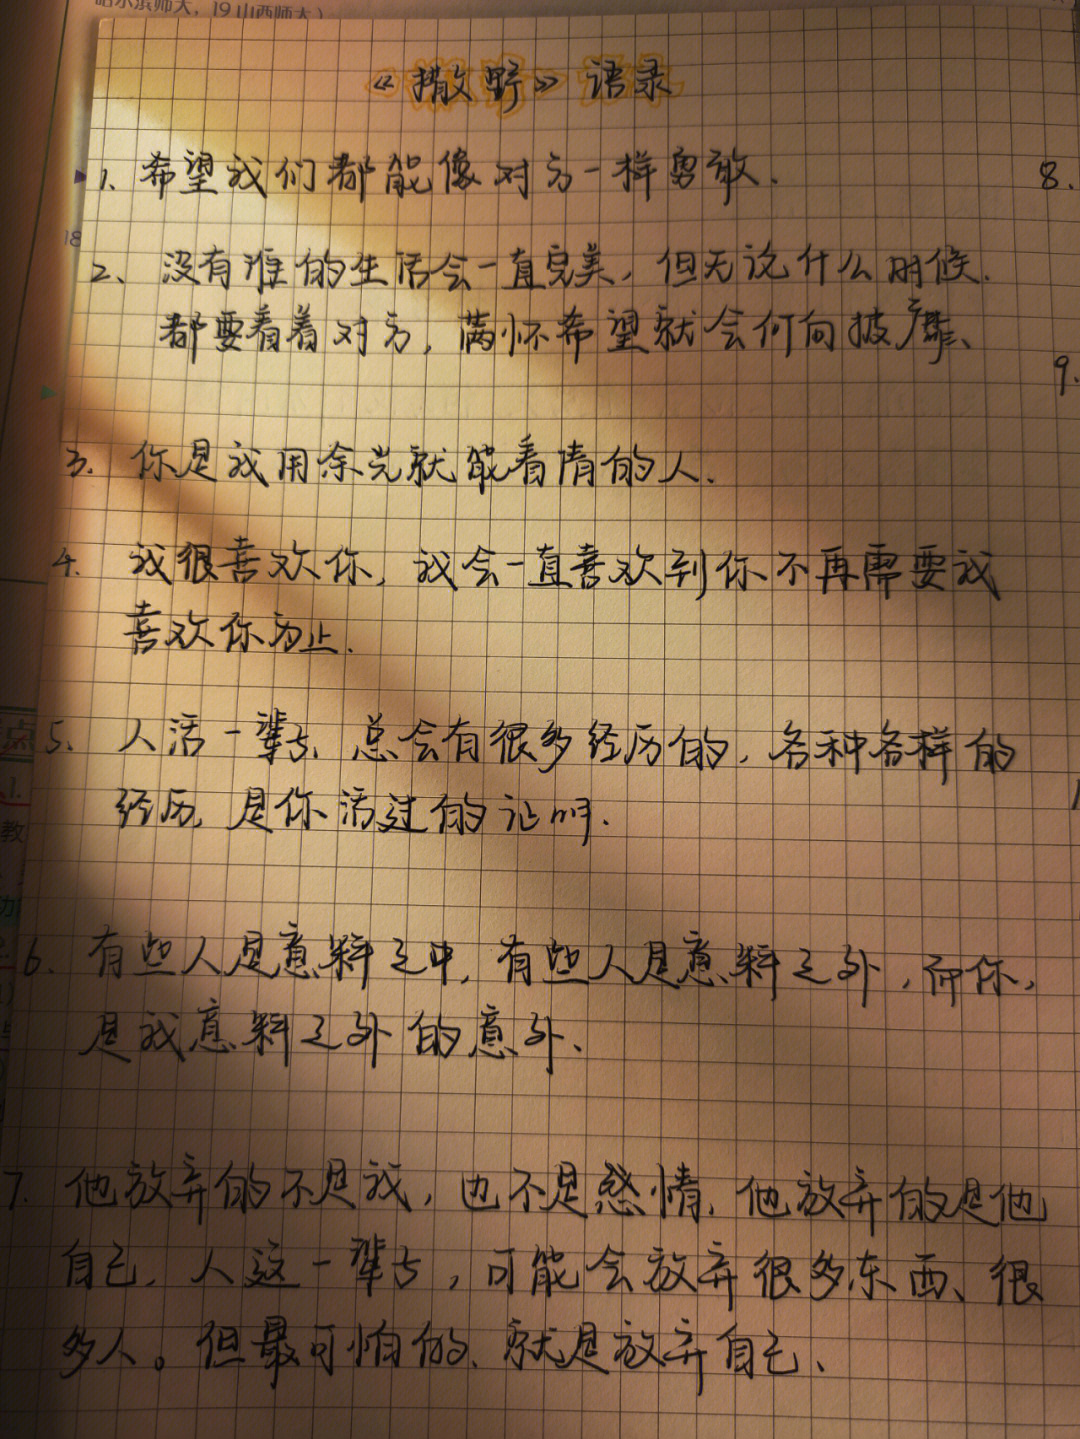 哈尔滨师大，19山西师大）
《撒野》语录
1、希望我们都能像对方一样勇敢.
8.
18
2、没有谁的生活会一直完美，但无论什么时候.
都要看着对方，满怀希望就会所向披靡、
9.
3. 你是我用余光就能看清的人.
4. 我很喜欢你，我会一直喜欢到你不再需要我
喜欢你为止.
点
5. 人活一辈子、总会有很多经历的，各种各样的
经历，是你活过的证明.
1.
教
6. 有些人是意料之中，有些人是意料之外，而你，
是我意料之外的意外、
7. 他放弃的不是我，也不是感情，他放弃的是他
自己. 人这一辈子，可能会放弃很多东西、很
多人。但最可怕的、就是放弃自己、